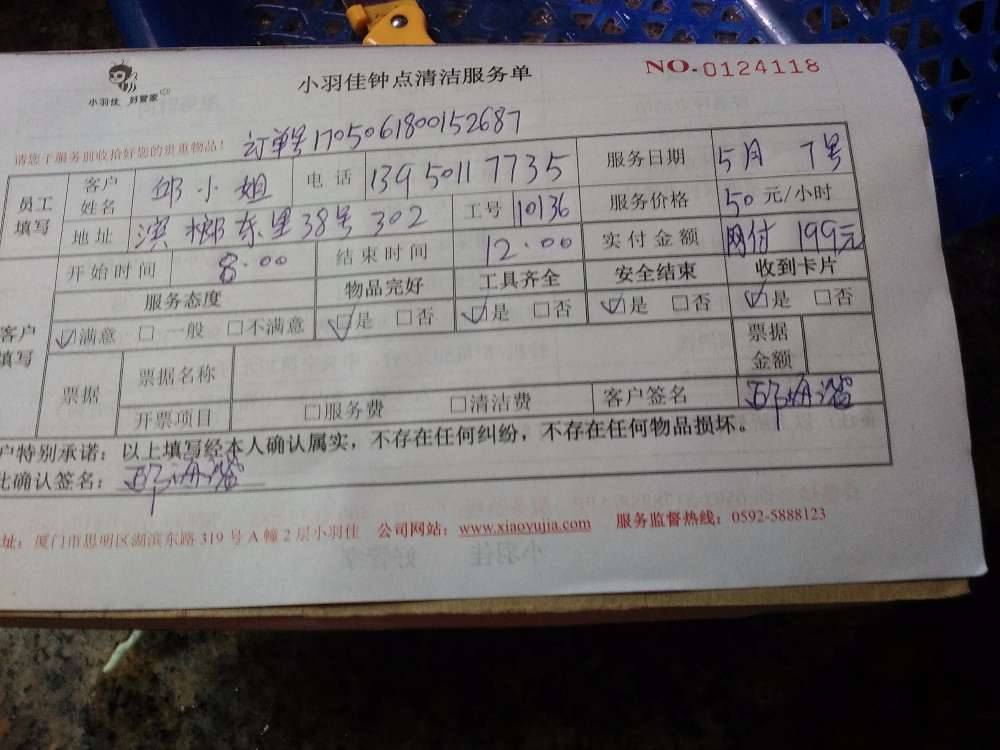 小羽佳 好管家
小羽佳钟点清洁服务单
NO.0124118
请您于服务前收拾好您的贵重物品!
订单号1705061800152687
员工填写 客户姓名 邱小姐 电话 13950117735 服务日期 5月 7号
地址 滨榔东里38号 302 工号 10136 服务价格 50 元/小时
开始时间 8:00 结束时间 12:00 实付金额 网付 199元
客户填写 服务态度 物品完好 工具齐全 安全结束 收到卡片
☑满意 □一般 □不满意 ☑是 □否 ☑是 □否 ☑是 □否 ☑是 □否
票据 票据名称 票据金额
开票项目 □服务费 □清洁费 客户签名
户特别承诺:以上填写经本人确认属实,不存在任何纠纷,不存在任何物品损坏。
此确认签名:
址:厦门市思明区湖滨东路 319 号 A 幢 2 层小羽佳 公司网站:www.xiaoyujia.com 服务监督热线:0592-5888123